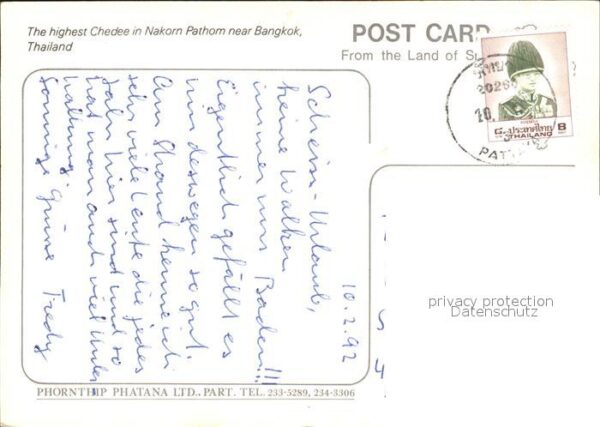 The highest Chedee in Nakorn Pathom near Bangkok,
Thailand
POST CARD
From the Land of
20260
10.
ประเทศไทย
THAILAND
8
PATT
10.2.92
Scheiss-Urlaub,
keine Wolken
immer nur Baden!!!
Eigentlich gefällt es
mir deswegen so gut.
Am Strand kenne ich
sehr viele Leute die jedes
Jahr hier sind und so
hat man auch viel Unter
haltung.
Sonnige Grüsse Fredy
S
4
privacy protection
Datenschutz
PHORNTHIP PHATANA LTD., PART. TEL. 233-5289, 234-3306